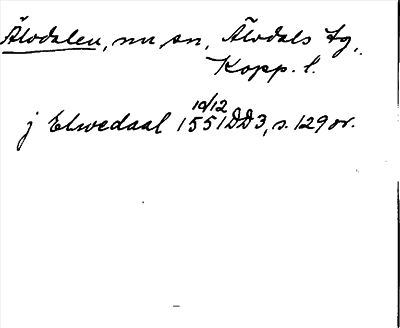 Älvdalen, nu sn, Älvdals tg,
Kopp. l.
10/12
j Elwedaal 1551 DD3, s. 129 or.